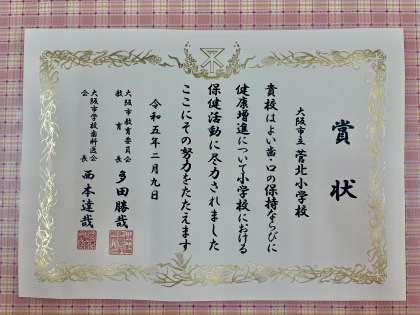 賞状
大阪市立 菅北小学校
貴校はよい歯・口の保持ならびに
健康増進について小学校における
保健活動に尽力されました
ここにその努力をたたえます
令和五年二月九日
大阪市教育委員会
教育長 多田勝哉
大阪市学校歯科医会
会長 西本達哉